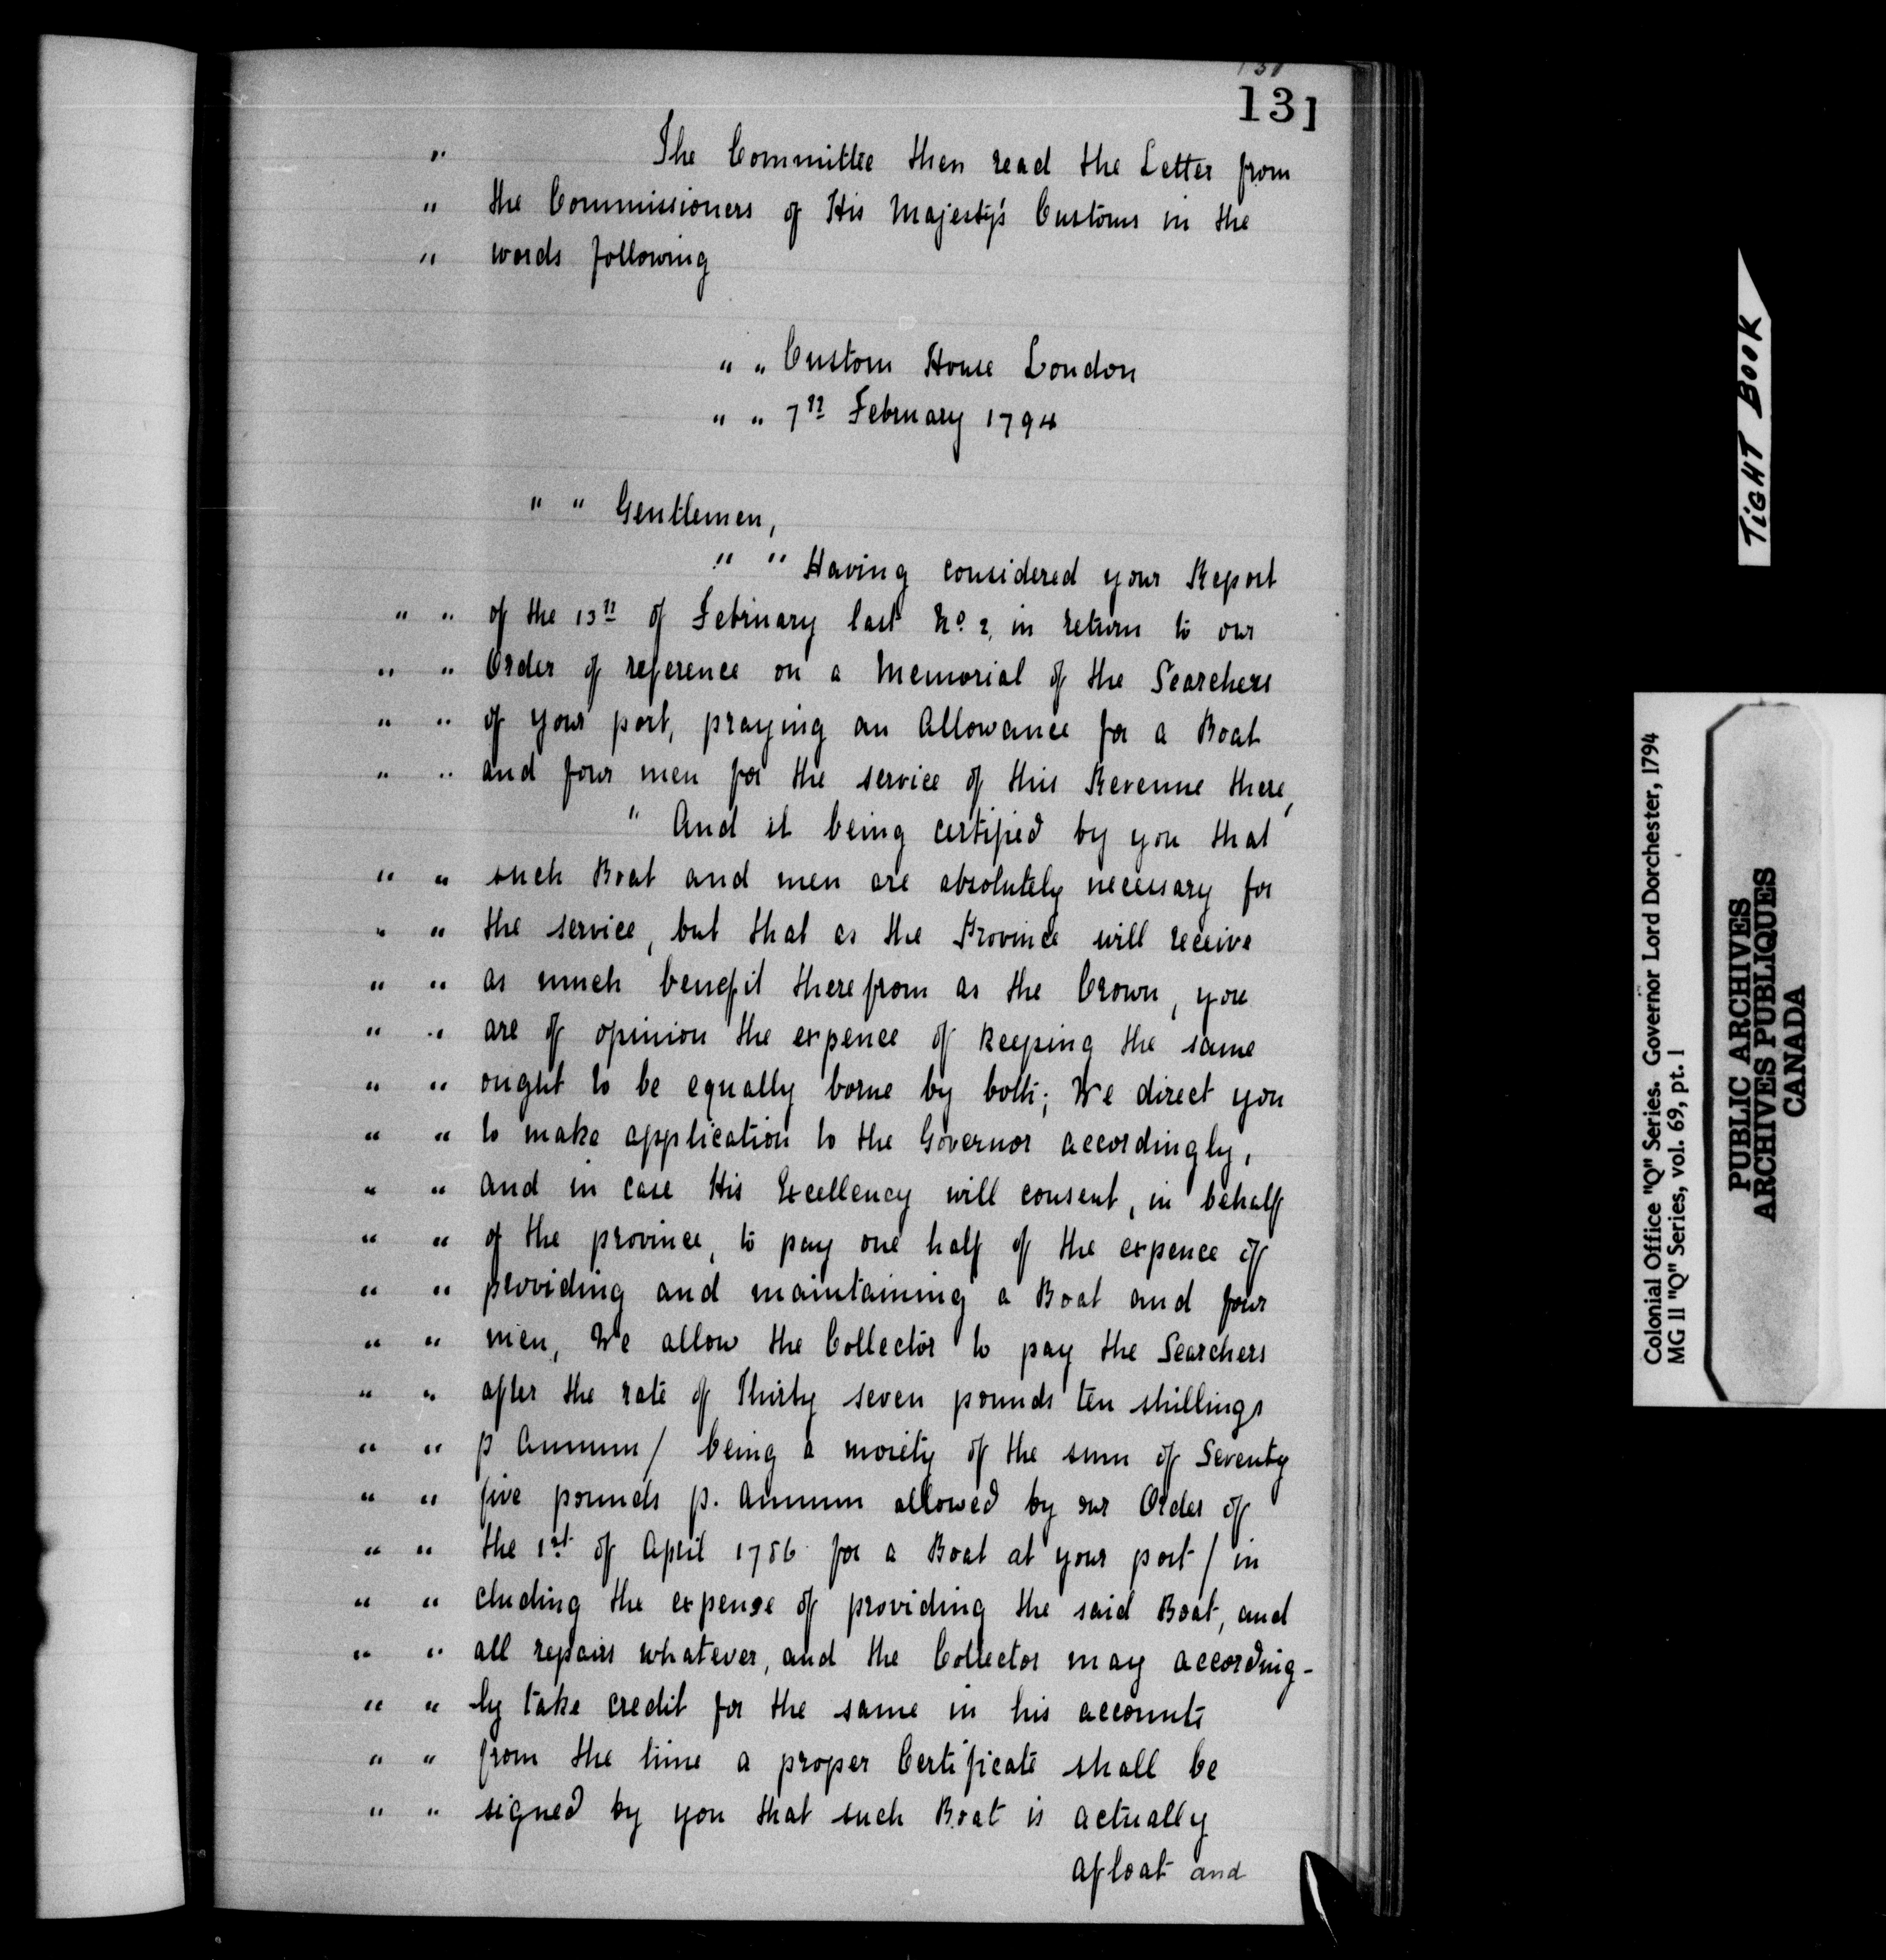 131
" The Committee then read the Letter from
" the Commissioners of His Majesty's Customs in the
" words following
" " Custom House London
" " 7th February 1794
" " Gentlemen,
" " Having considered your Report
" " of the 13th of February last No. 2, in return to our
" " Order of reference on a Memorial of the Searchers
" " of your port, praying an Allowance for a Boat
" " and four men for the service of this Revenue there,
" And it being certified by you that
" " such Boat and men are absolutely necessary for
" " the service, but that as the Province will receive
" " as much benefit therefrom as the Crown, you
" " are of opinion the expence of keeping the same
" " ought to be equally borne by both; We direct you
" " to make application to the Governor accordingly,
" " and in case His Excellency will consent, in behalf
" " of the province, to pay one half of the expence of
" " providing and maintaining a Boat and four
" " men, We allow the Collector to pay the Searchers
" " after the rate of Thirty seven pounds ten shillings
" " p Annum / being a moiety of the sum of Seventy
" " five pounds p. Annum allowed by our Order of
" " the 1st of April 1786 for a Boat at your port / in
" " cluding the expense of providing the said Boat, and
" " all repairs whatever, and the Collector may according-
" " ly take credit for the same in his accounts
" " from the time a proper Certificate shall be
" " signed by you that such Boat is actually
afloat and
TIGHT BOOK
Colonial Office "Q" Series. Governor Lord Dorchester, 1794
MG 11 "Q" Series, vol. 69, pt. 1
PUBLIC ARCHIVES
ARCHIVES PUBLIQUES
CANADA